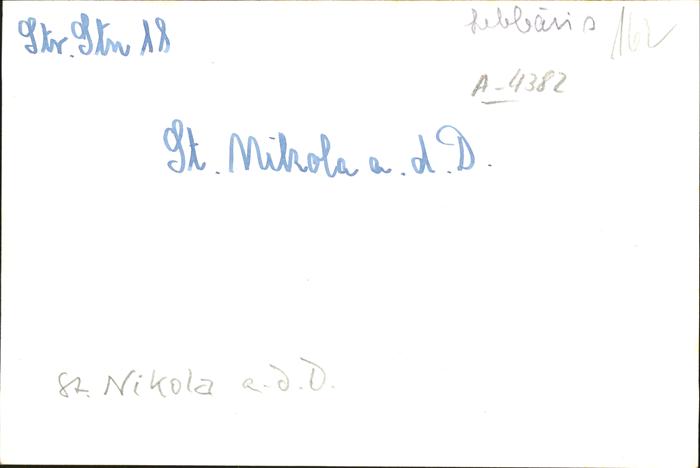 Str. Stn 11
162
A-4382
St. Nikola a. d. D.
St. Nikola a.d.D.